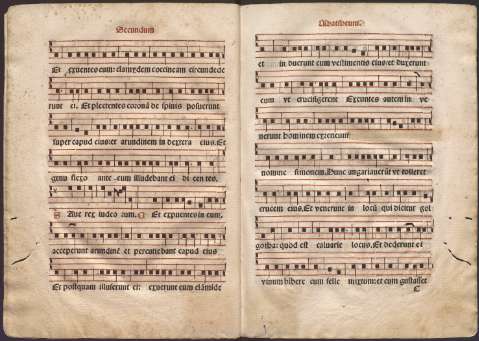 Secundum
Et exuentes eum: clamydem coccineam circundede
runt ei. Et plectentes coronã de spinis posuerunt
super caput eius: et arundinem in dextera eius. Et
genu flexo ante eum illudebant ei dicentes.
Ave rex iudeorum. Et expuentes in eum,
acceperunt arundinẽ et percutiebant caput eius
Et postquam illuserunt ei: exuerunt eum clãmide
Mattheum
et induerunt eum vestimentis eius et duxerunt
eum vt crucifigerent Exeuntes autem in ve
nerunt hominem cyreneum
nomine simonem. Hunc angariauerũt vt tolleret
crucem eius. Et venerunt in locũ qui dicitur gol
gotha: quod est caluarie locus. Et dederunt ei
vinum bibere cum felle mixtum: et cum gustasset